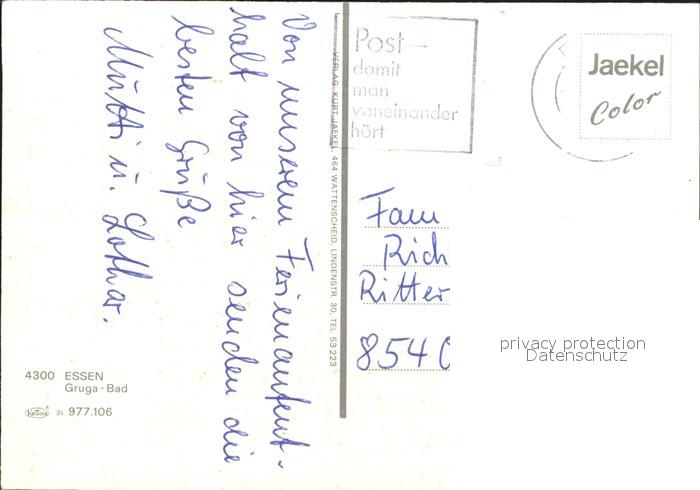 Von unserem Ferienaufent-
halt von hier senden die
besten Grüße
Mutti u. Lothar.
4300 ESSEN
Gruga-Bad
Krüger 31 977.106
VERLAG: KURT JAEKEL, 464 WATTENSCHEID, LINDENSTR. 30, TEL 53 223
Post-
damit
man
voneinander
hört
Jaekel
Color
Fam
Rich
Ritter
8540
privacy protection
Datenschutz